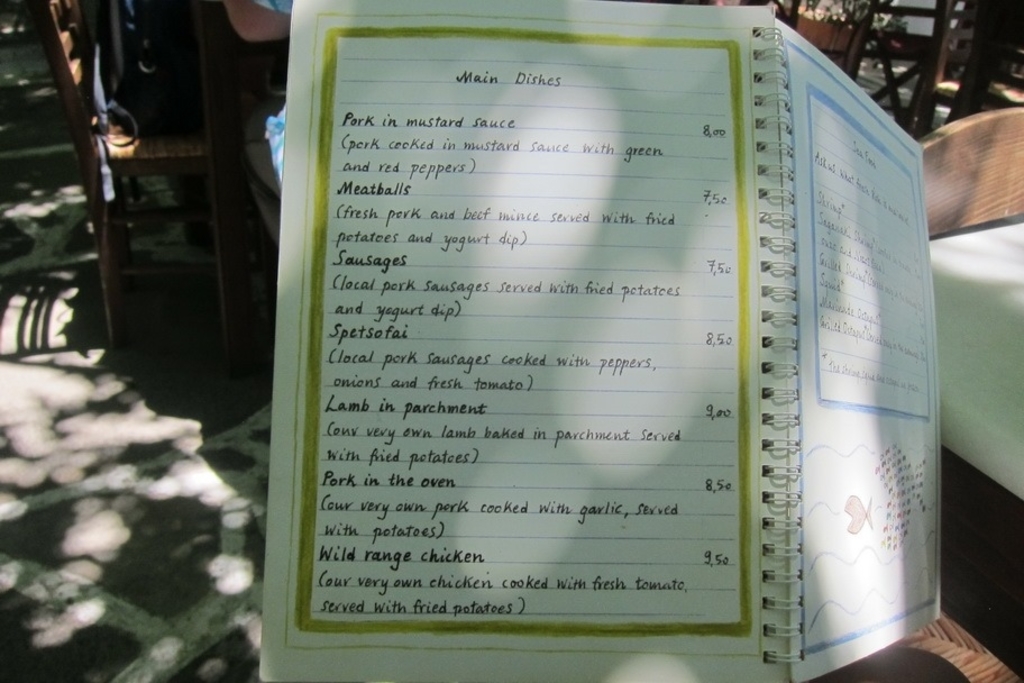 Main Dishes
Pork in mustard sauce 8,00
(pork cooked in mustard sauce with green
and red peppers)
Meatballs 7,50
(fresh pork and beef mince served with fried
potatoes and yogurt dip)
Sausages 7,50
(local pork sausages served with fried potatoes
and yogurt dip)
Spetsofai 8,50
(local pork sausages cooked with peppers,
onions and fresh tomato)
Lamb in parchment 9,00
(our very own lamb baked in parchment served
with fried potatoes)
Pork in the oven 8,50
(our very own pork cooked with garlic, served
with potatoes)
Wild range chicken 9,50
(our very own chicken cooked with fresh tomato,
served with fried potatoes)
Sea Food
Ask us what fresh
Shrimp*
Saganaki Shrimp*
Grilled Shrimp*
Squid*
Marinade Octapus*
Grilled Octapus*